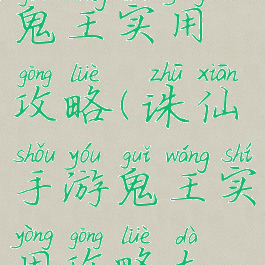 鬼王实用
gōng lüè zhū xiān
攻略(诛仙
shǒu yóu guǐ wáng shí
手游鬼王实
yòng gōng lüè dà
用攻略大